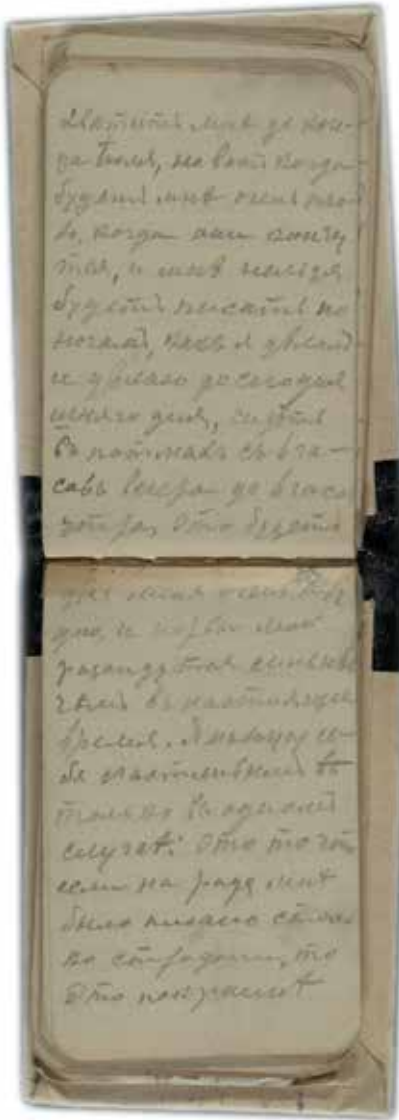 хватитъ мнѣ до кон-
ца Іюля, но вотъ когда
будетъ мнѣ очень
когда они кончу
тся, и мнѣ нельзя
будетъ писать по
ночамъ, какъ я дѣлалъ
и дѣлаю до сегодня
шняго дня, сидѣть
въ потьмахъ съ 6 ча-
совъ вечера до 6 часо
утра, это будетъ
для меня очень
дно, и нервы мои
разойдутся сильнѣе
чѣмъ въ настоящее
время. Я нахожу се-
бя счастливымъ
только въ одномъ
случаѣ: это то что
если на роду мнѣ
было писано столь
ко страданій, то
это